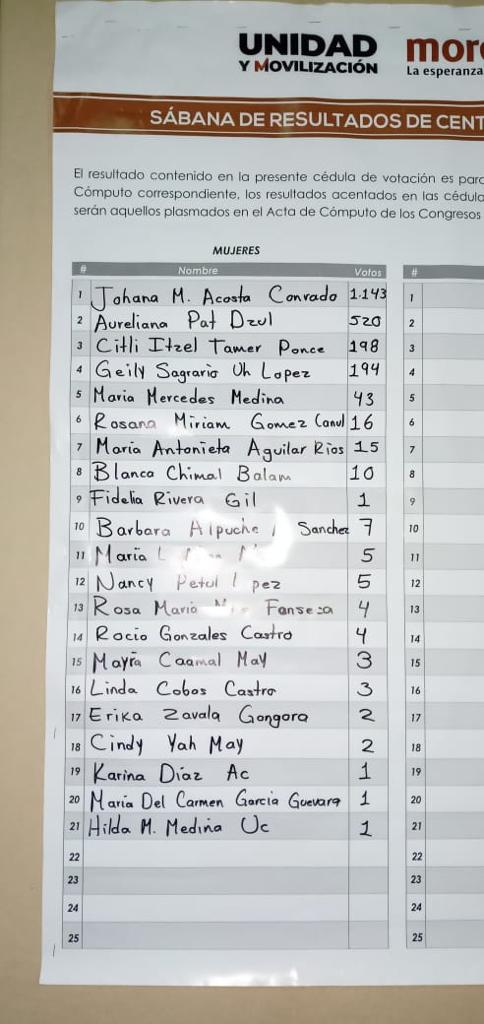 UNIDAD
Y MOVILIZACIÓN
more
La esperanza
SÁBANA DE RESULTADOS DE CENT
El resultado contenido en la presente cédula de votación es parc
Cómputo correspondiente, los resultados acentados en las cédula
serán aquellos plasmados en el Acta de Cómputo de los Congresos
MUJERES
# Nombre Votos #
1 Johana M. Acosta Conrado 1.143 1
2 Aureliana Pat Dzul 520 2
3 Citli Itzel Tamer Ponce 198 3
4 Geily Sagrario Uh Lopez 194 4
5 Maria Mercedes Medina 43 5
6 Rosana Miriam Gomez Canul 16 6
7 María Antonieta Aguilar Rios 15 7
8 Blanca Chimal Balam 10 8
9 Fidelia Rivera Gil 1 9
10 Barbara Alpuche Sanchez 7 10
11 María 5 11
12 Nancy Petul 5 12
13 Rosa Maria Fonseca 4 13
14 Rocio Gonzales Castro 4 14
15 Mayra Caamal May 3 15
16 Linda Cobos Castro 3 16
17 Erika Zavala Gongora 2 17
18 Cindy Yah May 2 18
19 Karina Díaz Ac 1 19
20 María Del Carmen Garcia Guevara 1 20
21 Hilda M. Medina Uc 1 21
22 22
23 23
24 24
25 25